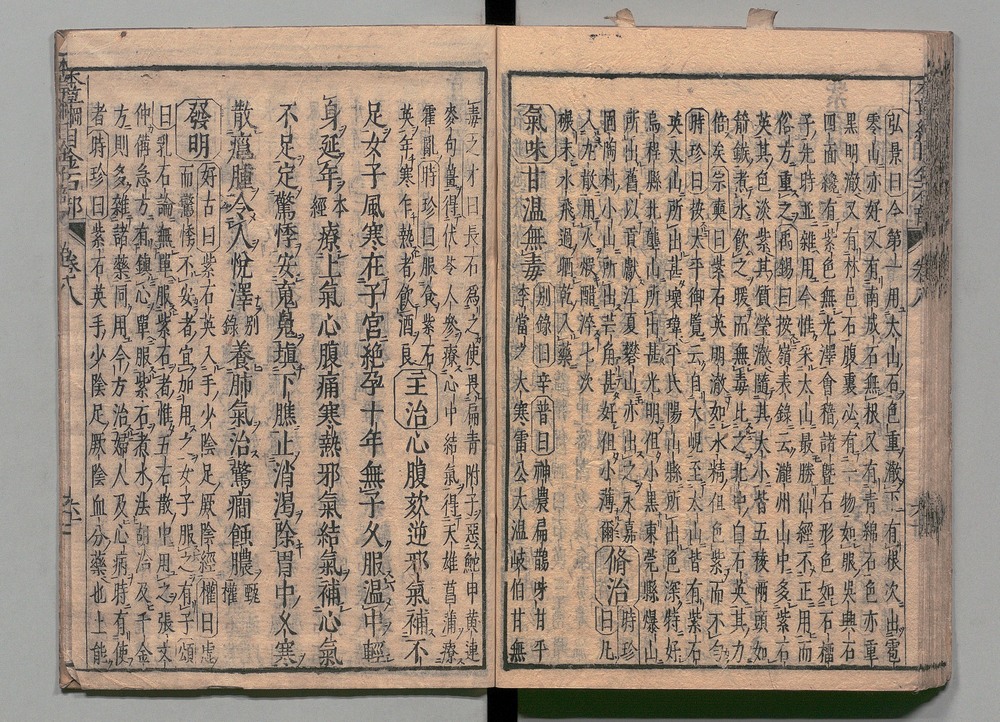 弘景曰今第一用太山石色重澈下有根次出雹
零山亦好又有南城石無根又有青綿石色亦重
黒明澈又有林邑石腹裏必有一物如眼呉興石
四面纔有紫色無光澤會稽諸暨石形色如石榴
子先時並雜用今惟采太山最勝仙經不正用而
俗方重之禹錫曰按嶺表錄云瀧州山中多紫石
英其色淡紫其質瑩澈隨其大小皆五稜兩頭如
箭鏃煮水飲之暖而無毒比之北中白石英其力
倍矣宗奭曰紫石英明澈如水精但色紫而不勻
時珍曰按太平御覽云自大峴至太山皆有紫石
英太山所出甚瓌瑋平氏陽山縣所出色深特好
烏程縣北壟山所出甚光明但小黒東莞縣爆山
所出舊以貢獻江夏礬山亦出之永嘉
固陶村小山所出芒角甚好但小薄爾 脩治 時珍曰凡
入丸散用火煆醋淬七次
碾末水飛過晒乾入藥
氣味甘温無毒 别錄曰辛普曰神農扁鵲味甘平
李當之大寒雷公大温岐伯甘無
毒之才曰長石爲之使畏扁青附子惡鮀甲黄連
麥句薑得茯苓人參療心中結氣得天雄菖蒲療
霍亂時珍曰服食紫石
英年寒乍熱者飲酒良 主治心腹欬逆邪氣補不
足女子風寒在子宮絶孕十年無子久服温中輕
身延年本經療上氣心腹痛寒熱邪氣結氣補心氣
不足定驚悸安䰟魄塡下膲止消渇除胃中久寒
散癰腫令人悅澤别錄養肺氣治驚癇蝕膿甄權
發明 好古曰紫石英入手少陰足厥陰經權曰虚
而驚悸不安者宜加用之女子服之有子頌
曰乳石論無單服紫石者惟五石散中用之張文
仲備急方有鎮心單服紫石煮水法胡洽及千金
方則多雜諸藥同用今方治婦人及心病時有使
者時珍曰紫石英手少陰足厥陰血分藥也上能